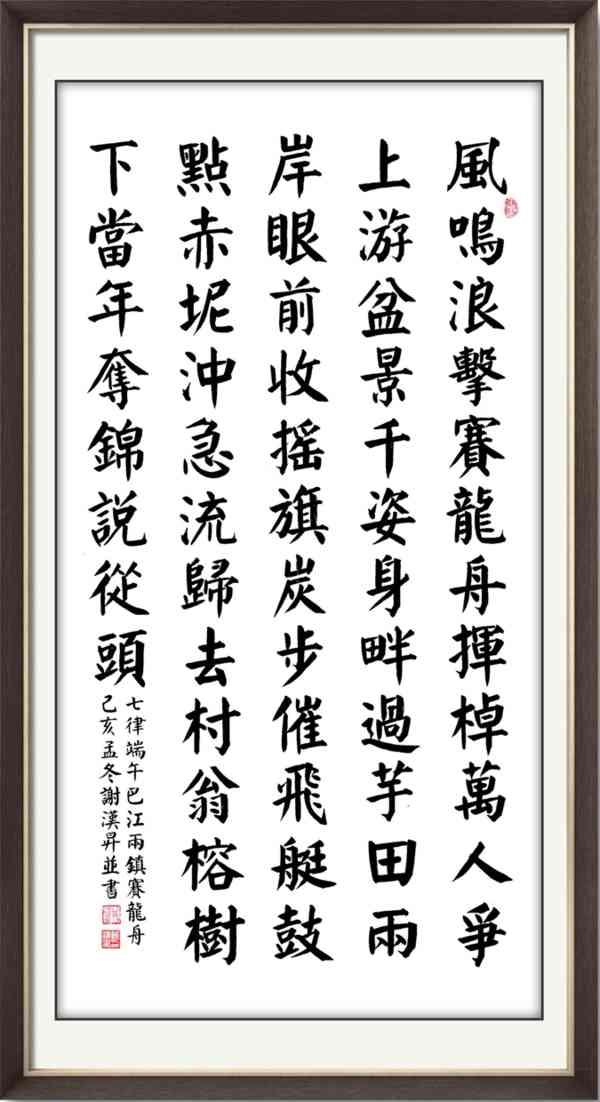 風鳴浪擊賽龍舟揮棹萬人爭
上游盆景千姿身畔過芋田兩
岸眼前收摇旗炭步催飛艇鼓
點赤坭沖急流歸去村翁榕樹
下當年奪錦説從頭
七律端午巴江兩鎮賽龍舟
己亥孟冬謝漢昇並書